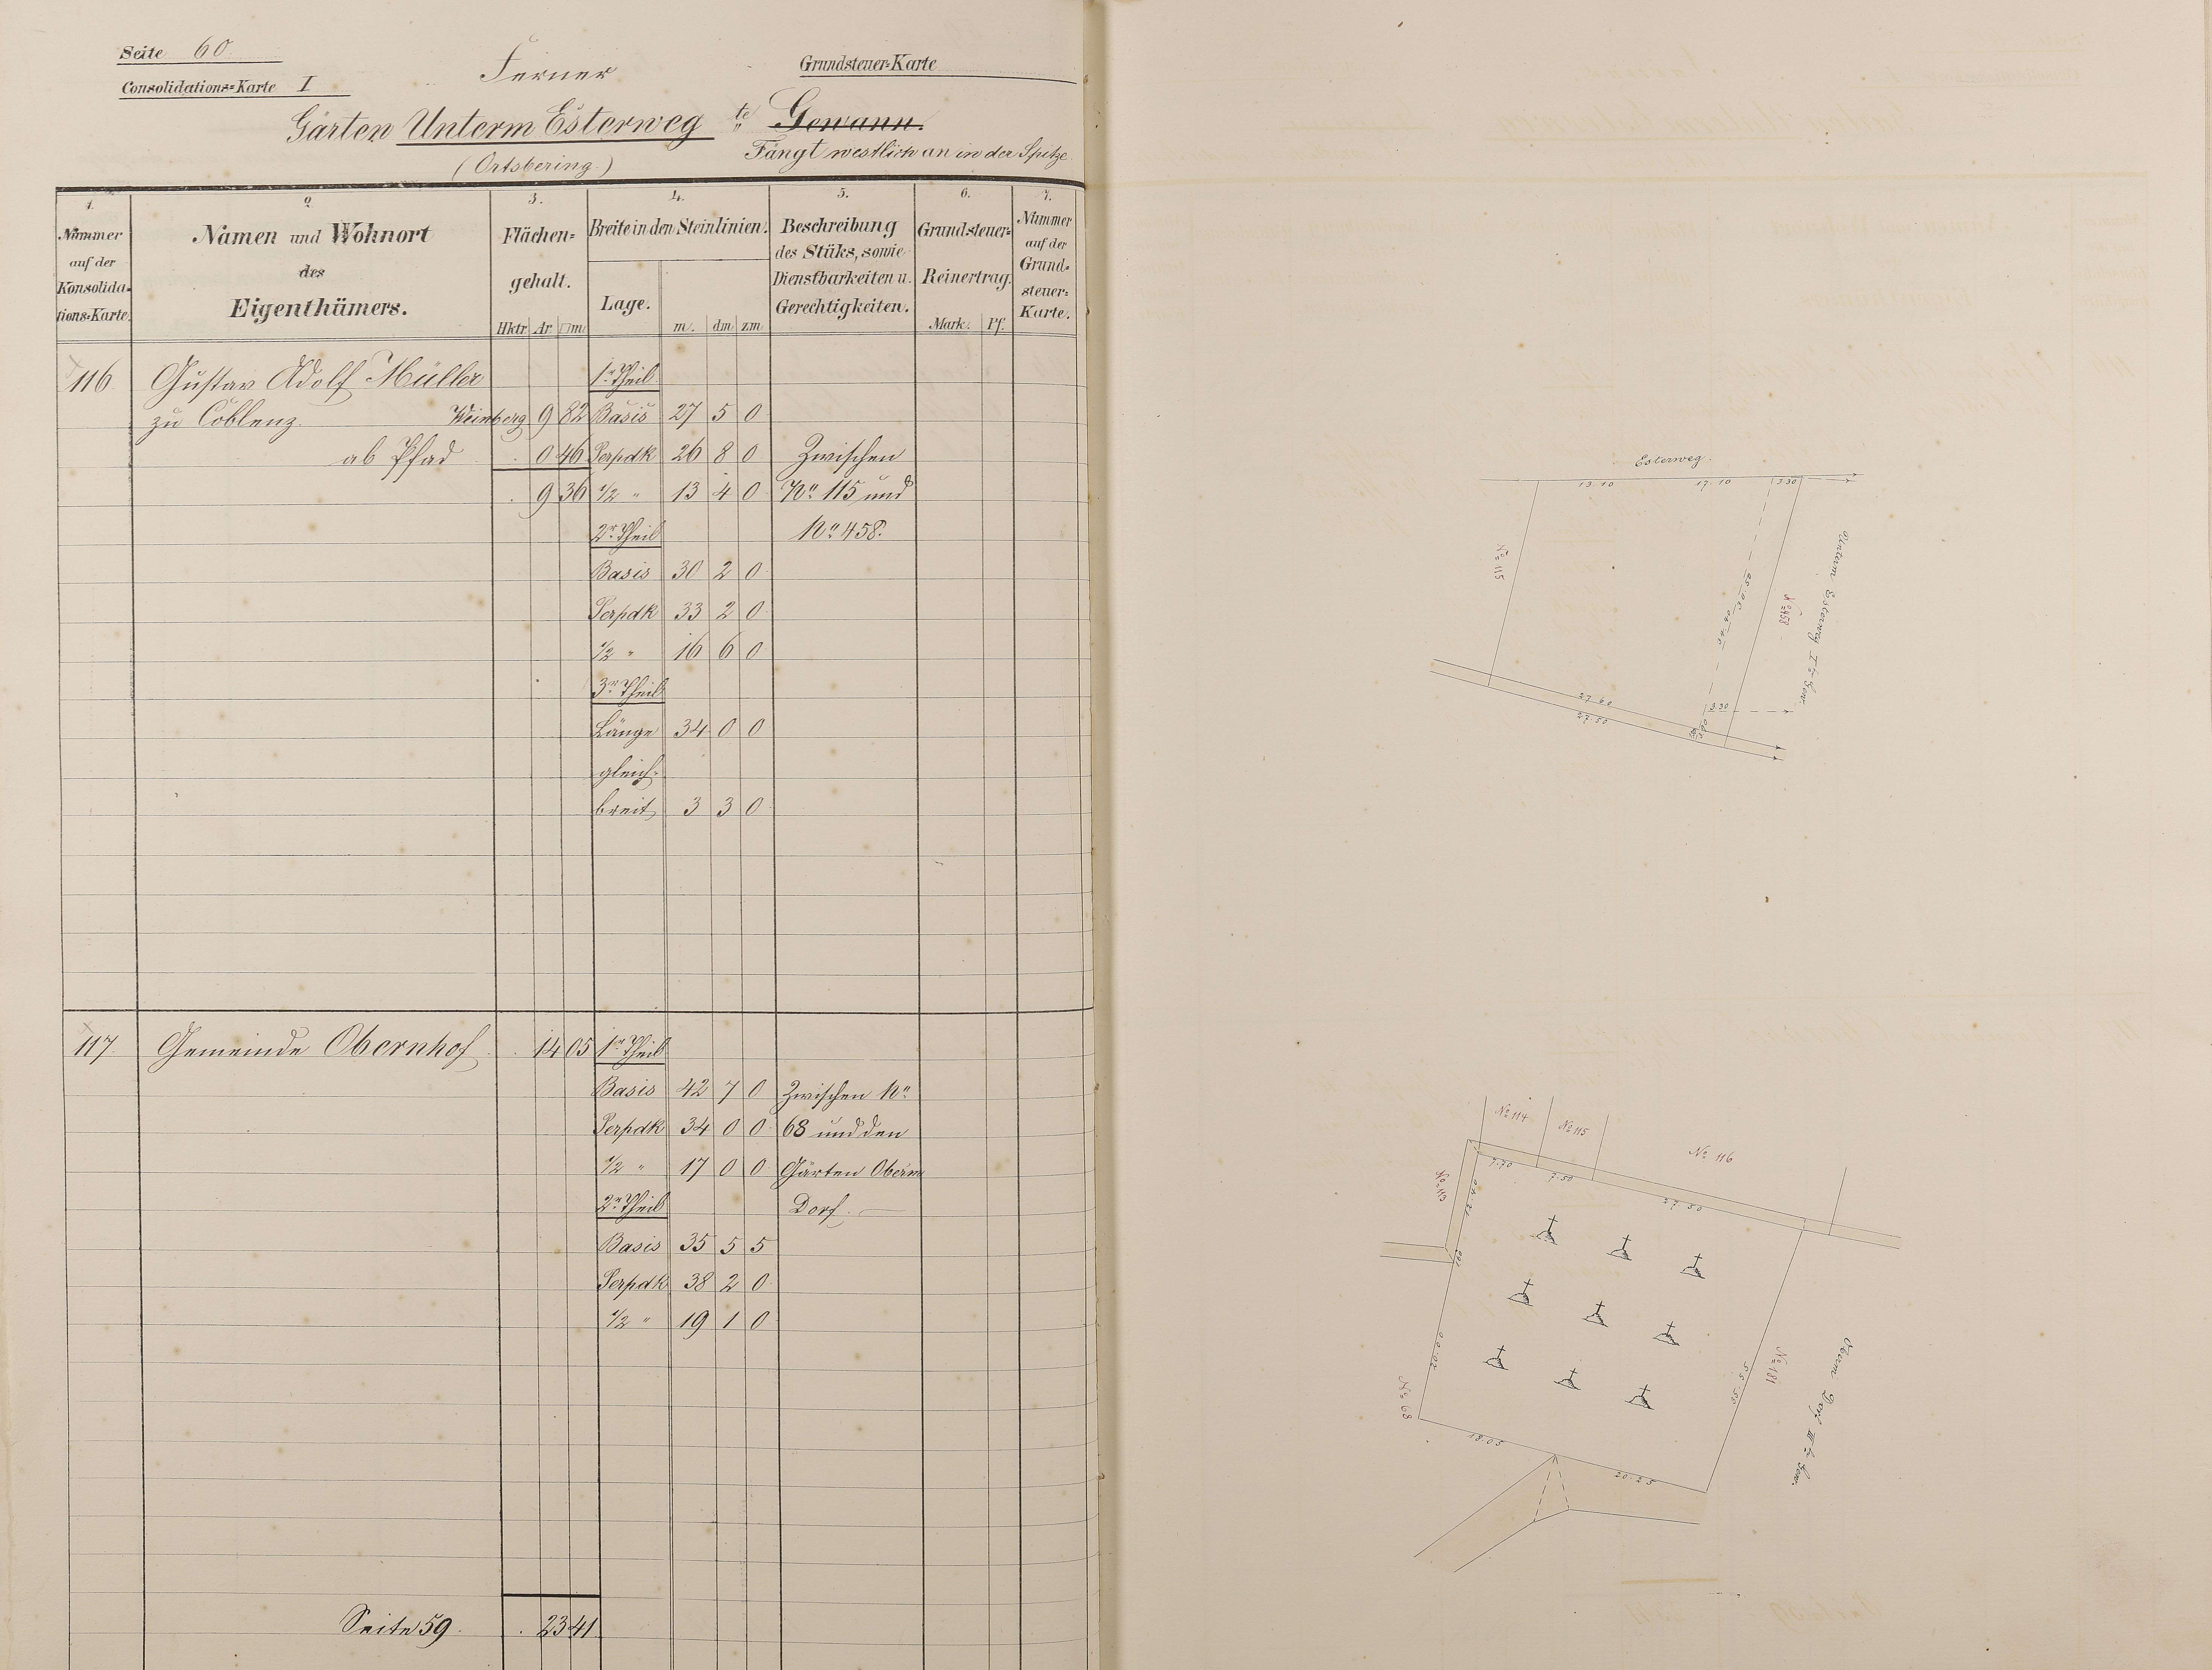 Seite 60.
Consolidations=Karte I
Ferner
Grundsteuer=Karte
Gärten Unterm Esterweg te Gewann.
(Ortsbering.)
Fängt westlich an in der Spitze
1. 2. 3. 4. 5. 6. 7.
Nummer auf der Konsolidations=Karte.
Namen und Wohnort des Eigenthümers.
Flächen=gehalt.
Hktr. Ar. □m.
Breite in den Steinlinien.
Lage. m. dm zm
Beschreibung des Stüks, sowie Dienstbarkeiten u. Gerechtigkeiten.
Grundsteuer=Reinertrag.
Mark. Pf.
Nummer auf der Grund=steuer=Karte.
116. Gustav Adolf Müller 1r Theil
zu Coblenz. Weinberg 9 82 Basis 27 5 0
ab Pfad . 0 46 Perpdk 26 8 0 Zwischen
. 9 36 1/2 " 13 4 0 No 115 und
2r Theil No 458.
Basis 30 2 0
Perpdk 33 2 0
1/2 " 16 6 0
3r Theil
Länge 34 0 0
gleich=
breit 3 3 0
117. Gemeinde Obernhof . 14 05 1r Theil
Basis 42 7 0 Zwischen No
Perpdk 34 0 0 68 und den
1/2 " 17 0 0 Gärten Oberm
2r Theil Dorf. —
Basis 35 5 5
Perpdk 38 2 0
1/2 " 19 1 0
Seite 59. . 23 41.
Esterweg.
13.10 17.10 3.30
No 115
No 458
Unterm Esterweg
27.60
27.50
3.30
No 114
No 115
No 116
No 113
7.70
7.50
27.50
No 68
18.05
20.25
35.55
No 181
Oberm Dorf